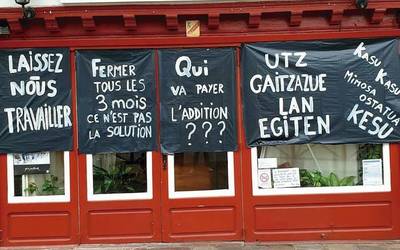 LAISSEZ
NOUS
TRAVAILLER
FERMER
TOUS LES
3 mois
CE N'EST PAS
LA SOLUTION
QUI
VA PAYER
L'ADDITION
???
UTZ
GAITZAZUE
LAN
EGITEN
KASU
KASU
MIMOSA
OSTATUA
KESU